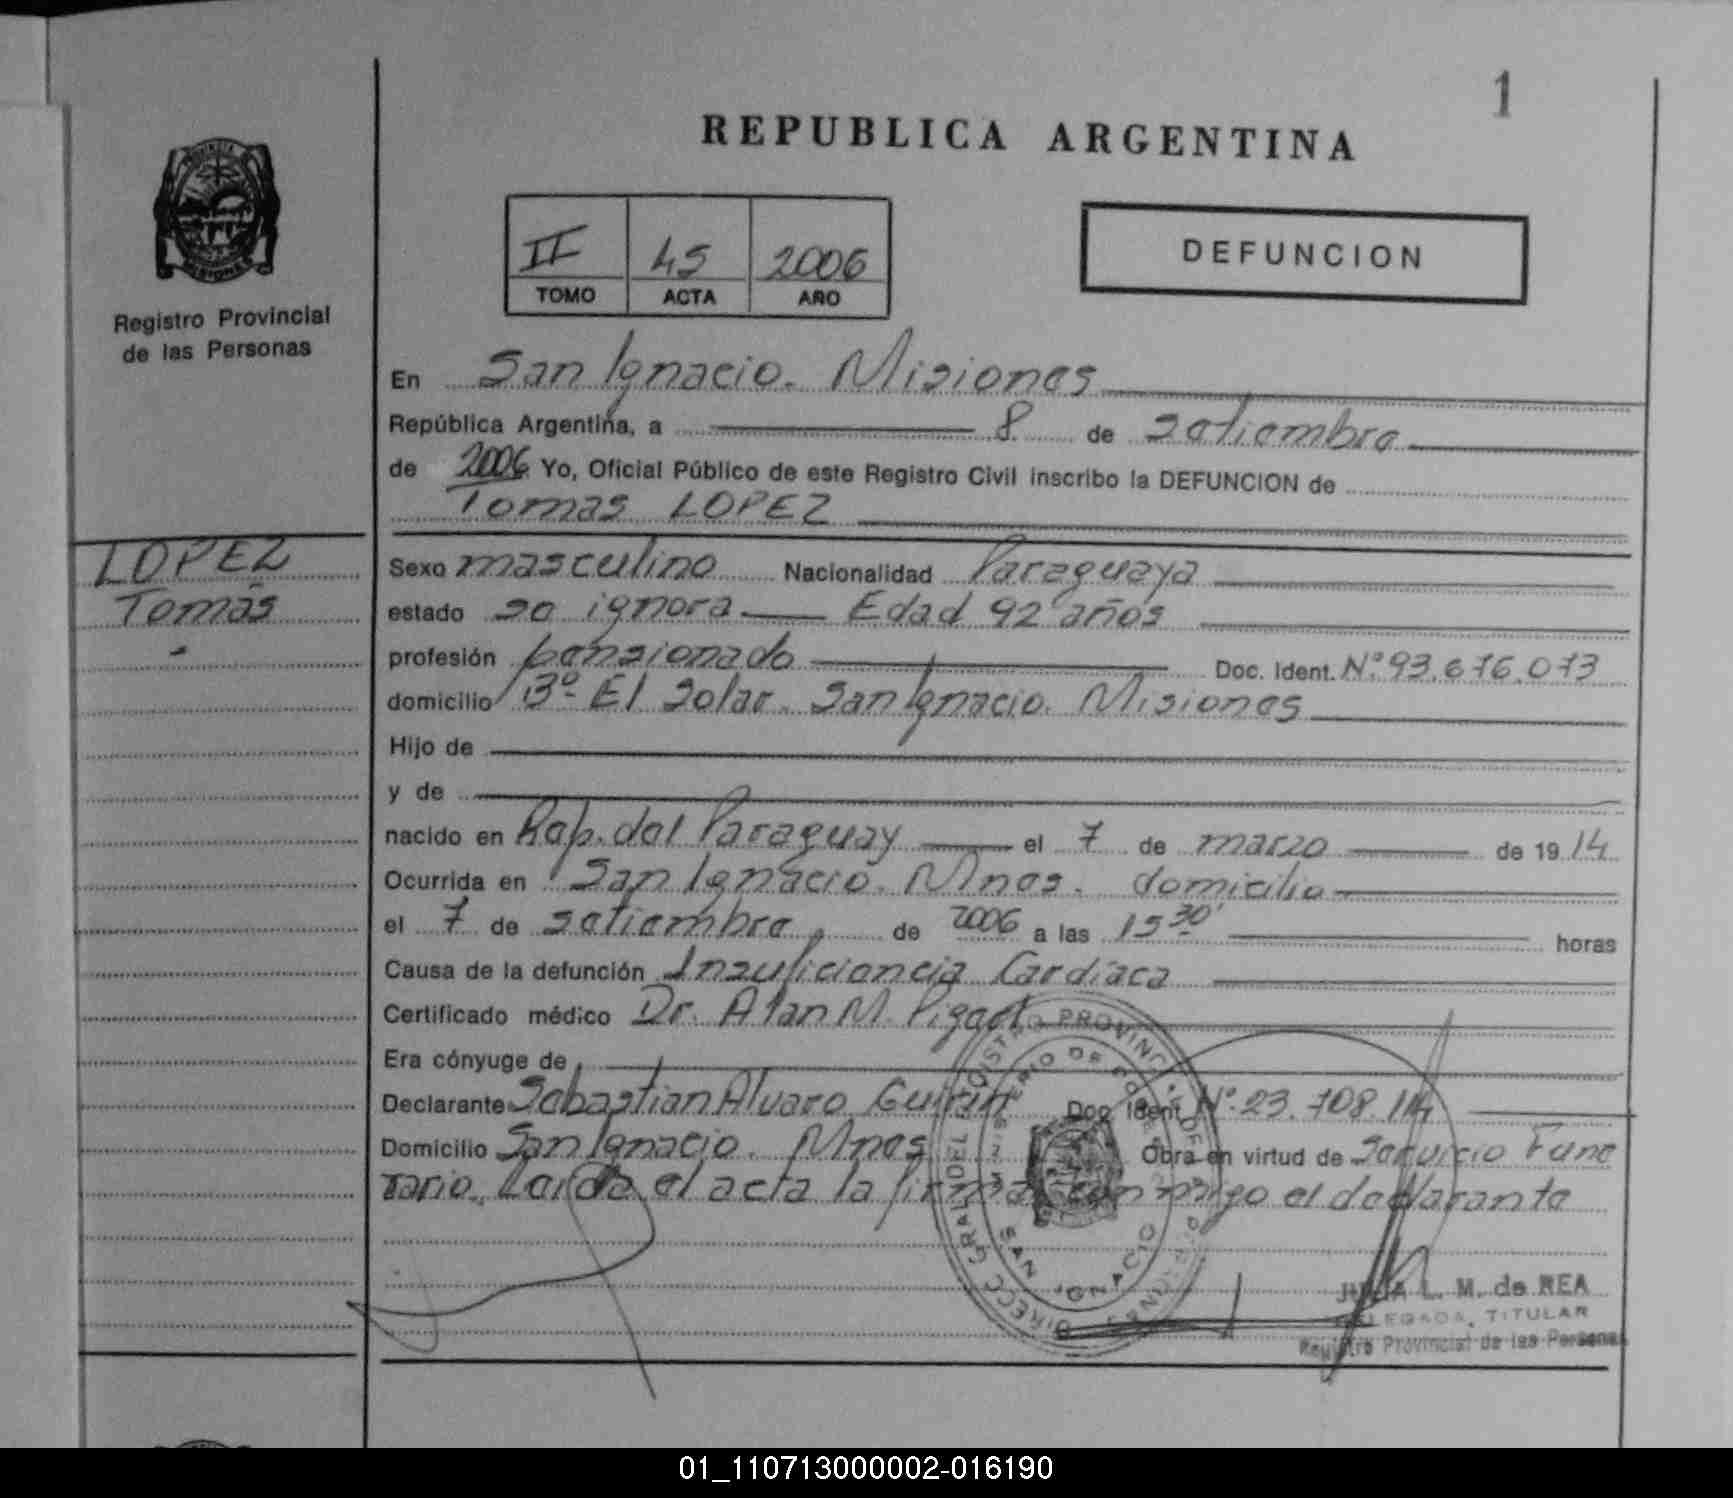 1
REPUBLICA ARGENTINA
II 45 2006
TOMO ACTA AÑO
DEFUNCION
PROVINCIA DE
MISIONES
Registro Provincial
de las Personas
En San Ignacio. Misiones
República Argentina, a 8 de setiembre
de 2006 Yo, Oficial Público de este Registro Civil inscribo la DEFUNCION de
Tomas LOPEZ
LOPEZ
Tomás
Sexo masculino Nacionalidad Paraguaya
estado se ignora Edad 92 años
profesión pensionado Doc. Ident. Nº 93.676.073
domicilio Bº El Solar. San Ignacio. Misiones
Hijo de
y de
nacido en Rep. del Paraguay el 7 de marzo de 1914
Ocurrida en San Ignacio. Mnes. domicilio
el 7 de setiembre de 2006 a las 15 30' horas
Causa de la defunción Insuficiencia Cardíaca
Certificado médico Dr. Alan M.
Era cónyuge de
Declarante Sebastian Alvaro Doc. Ident. Nº 23.708.114
Domicilio San Ignacio. Mnes Obra en virtud de Servicio Fune
rario. Leida el acta la firma conmigo el declarante
DIRECC GRAL DEL REGISTRO PROVINCIAL DE LAS PERSONAS
MINISTERIO DE GOBIERNO
SAN IGNACIO
JULIA L. M. de REA
DELEGADA TITULAR
Registro Provincial de las Personas
01_110713000002-016190